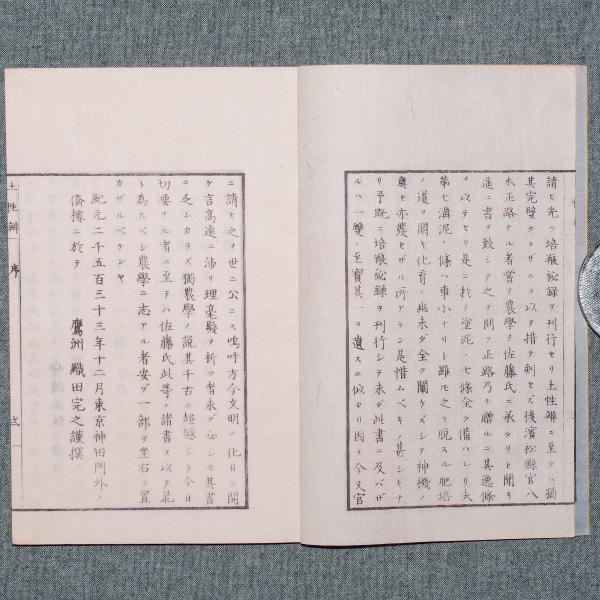 請ヒ先ツ培養祕録ヲ刊行セリ土性辨ニ至テハ猶
其完璧タラザルヲ以テ措テ刺セズ後濱松縣官八
木正路ナル者嘗テ農學ヲ佐藤氏ニ承タリト聞キ
遥ニ書ヲ致シテ之ヲ問フ正路乃チ贈ルニ其逸條
ヲ以テセリ是ニ於テ塗泥ノ七條全ク備ハレリ夫
第七溝泥ノ條ハ事小ナリト雖モ之ヲ脱スル肥培
ノ道ヲ闕キ化育ノ幽未ダ全ク闡ケズシテ神機ノ
奥モ亦養ヒザル所アラン是惜ムベキノ甚シキナ
リ予既ニ培養祕録ヲ刊行シテ未ダ此書ニ及バザ
ルハ一雙ノ至寶其一ヲ遺スニ似タリ因テ今又官
ニ請ヒ之ヲ世ニ公ニス嗚呼方今文明ノ化日ニ開
ケ言高遠ニ渉リ理毫髮ヲ析ツ者未ダ必シモ其書
ニ乏シカラズ獨農學ノ説其千古ニ超越シテ今日
切要ナル者ニ至テハ佐藤氏此等ノ諸書ヲ以テ最
ト為スベシ農學ニ志アル者安ゾ一部ヲ坐右ニ置
カザルベケンヤ
紀元二千五百三十三年十二月東京神田門外ノ
僑樓ニ於テ
鷹洲 織田完之謹撰
土性辨 序 弐